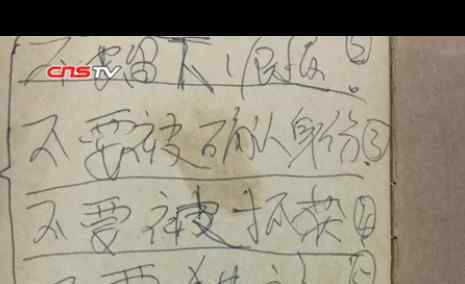 CNSTV
不要留下 ②
不要被确认身份③
不要被抓获④
不要